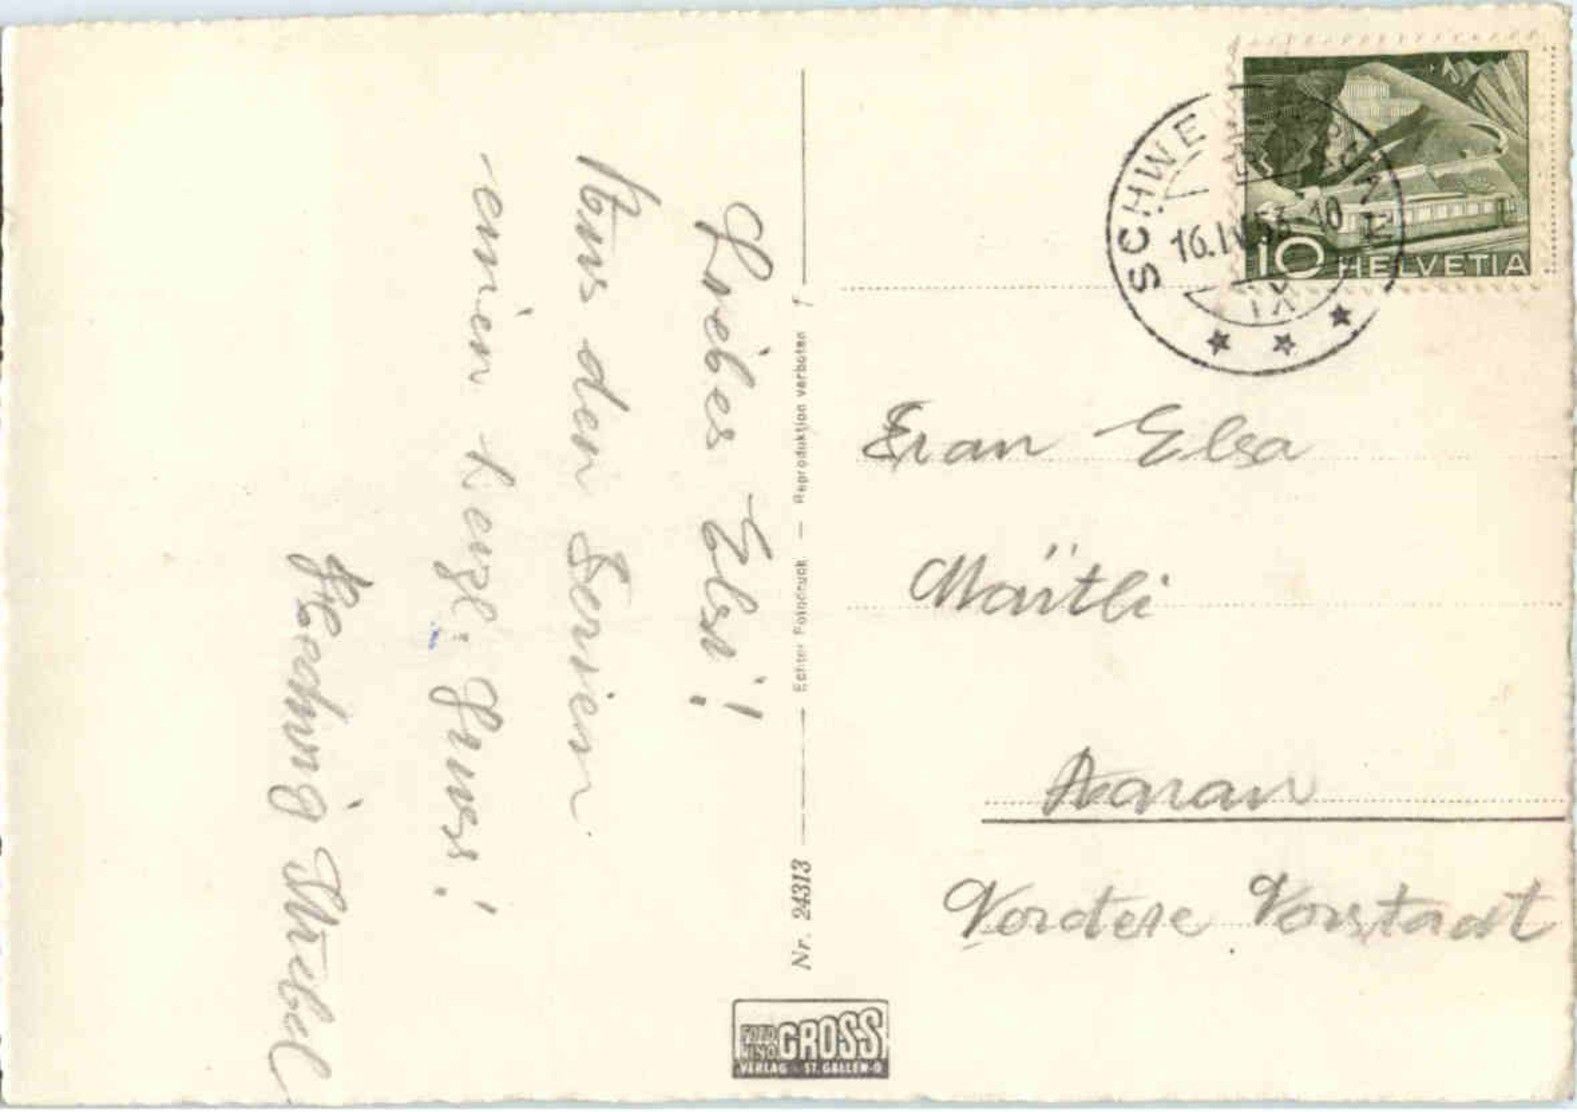 Liebes Elsi!
Aus den Ferien
einen herzl. Gruss!
Hedwig Strebel
Echter Fotodruck — Reproduktion verboten
Nr. 24313
FOTO KINO GROSS
VERLAG · ST. GALLEN-O
SCHWE
16.IV.53-10
IX
10 HELVETIA
Frau Elsa
Märtli
Aarau
Vordere Vorstadt